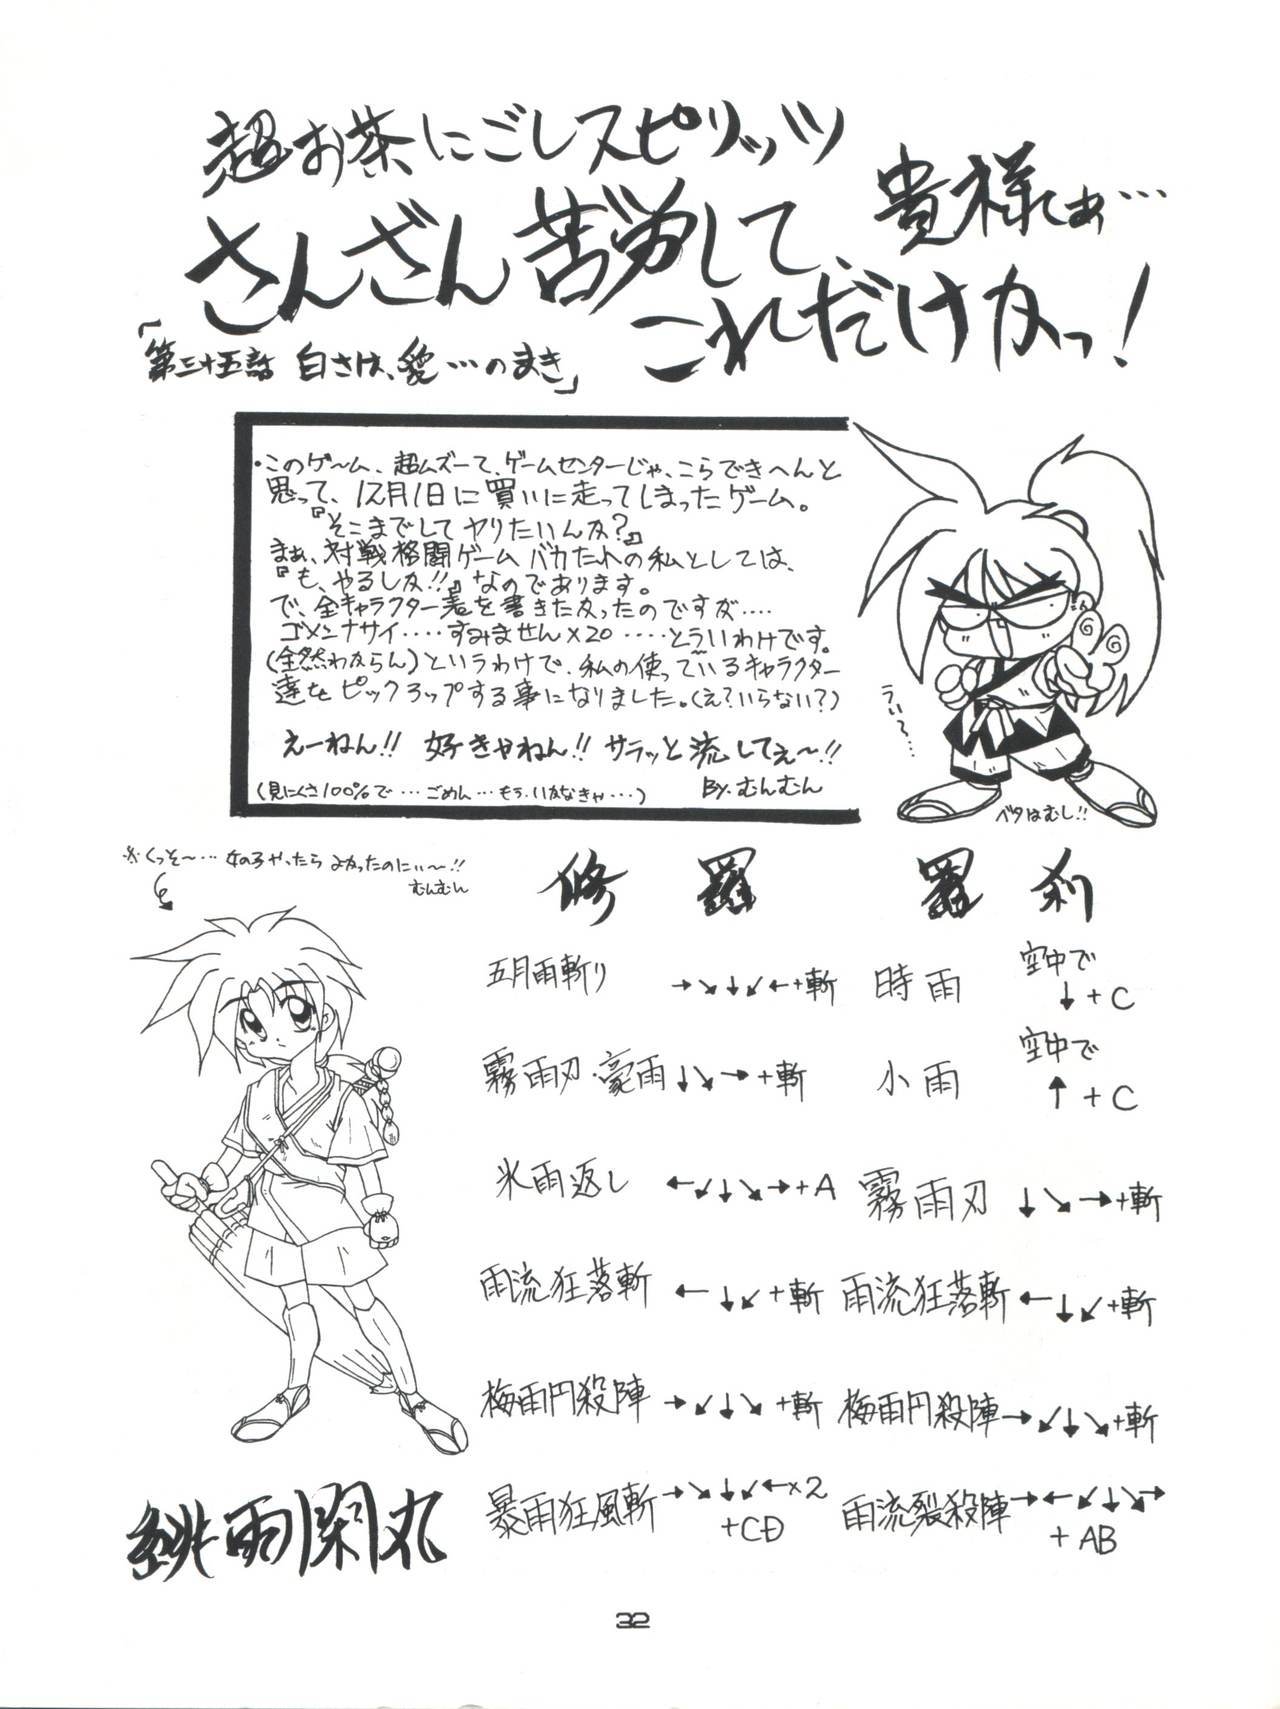 超お茶にごしスピリッツ
貴様らぁ…
さんざん苦労して、
これだけカっ!
「第三十五話 白さは、愛…のまき」
・このゲーム、超ムズーて、ゲームセンターじゃ、こらできへんと
思って、12月1日に買いに走ってしまったゲーム。
『そこまでしてヤりたいんか?』
まぁ、対戦格闘ゲームバカたれの私としては、
『も、やるしか!!』なのであります。
で、全キャラクター表を書きたかったのですが‥‥
ゴメンナサイ‥‥すみません×20‥‥とういわけです。
(全然わからん)というわけで、私の使っているキャラクター
達をピックアップする事になりました。(え?いらない?)
えーねん!! 好きやねん!! サラッと流してぇ〜!!
(見にくさ100%で…ごめん…もう、いかなきゃ…)
By.むんむん
うぃ〜…
ベタはむし!!
※くっそ〜…女の子やったらよかったのにぃ〜!!
むんむん
修羅 羅刹
五月雨斬り →↘↓↙←+斬 時雨 空中で↓+C
霧雨刃・豪雨 ↓↘→+斬 小雨 空中で↑+C
氷雨返し ←↙↓↘→+A 霧雨刃 ↓↘→+斬
雨流狂落斬 ←↓↙+斬 雨流狂落斬 ←↓↙+斬
梅雨円殺陣 →↙↓↘+斬 梅雨円殺陣 →↙↓↘+斬
暴雨狂風斬 →↘↓↙←×2+CD 雨流裂殺陣 →←↙↓↘→+AB
緋雨閑丸
32